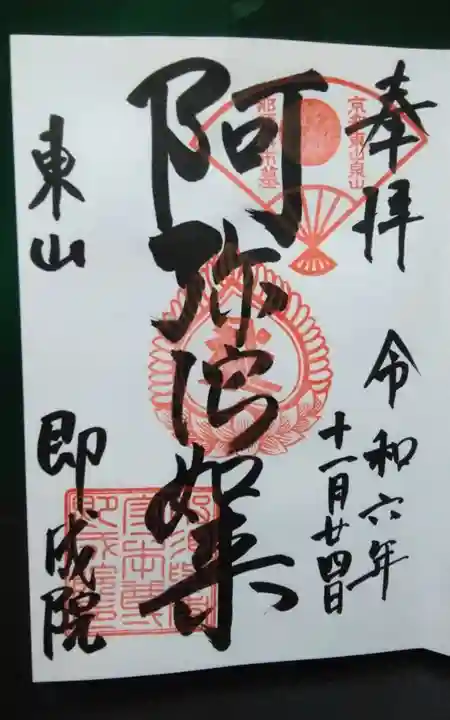 奉拝
令和六年
十一月廿四日
京都東山泉山
阿弥陀如来
東山
即成院